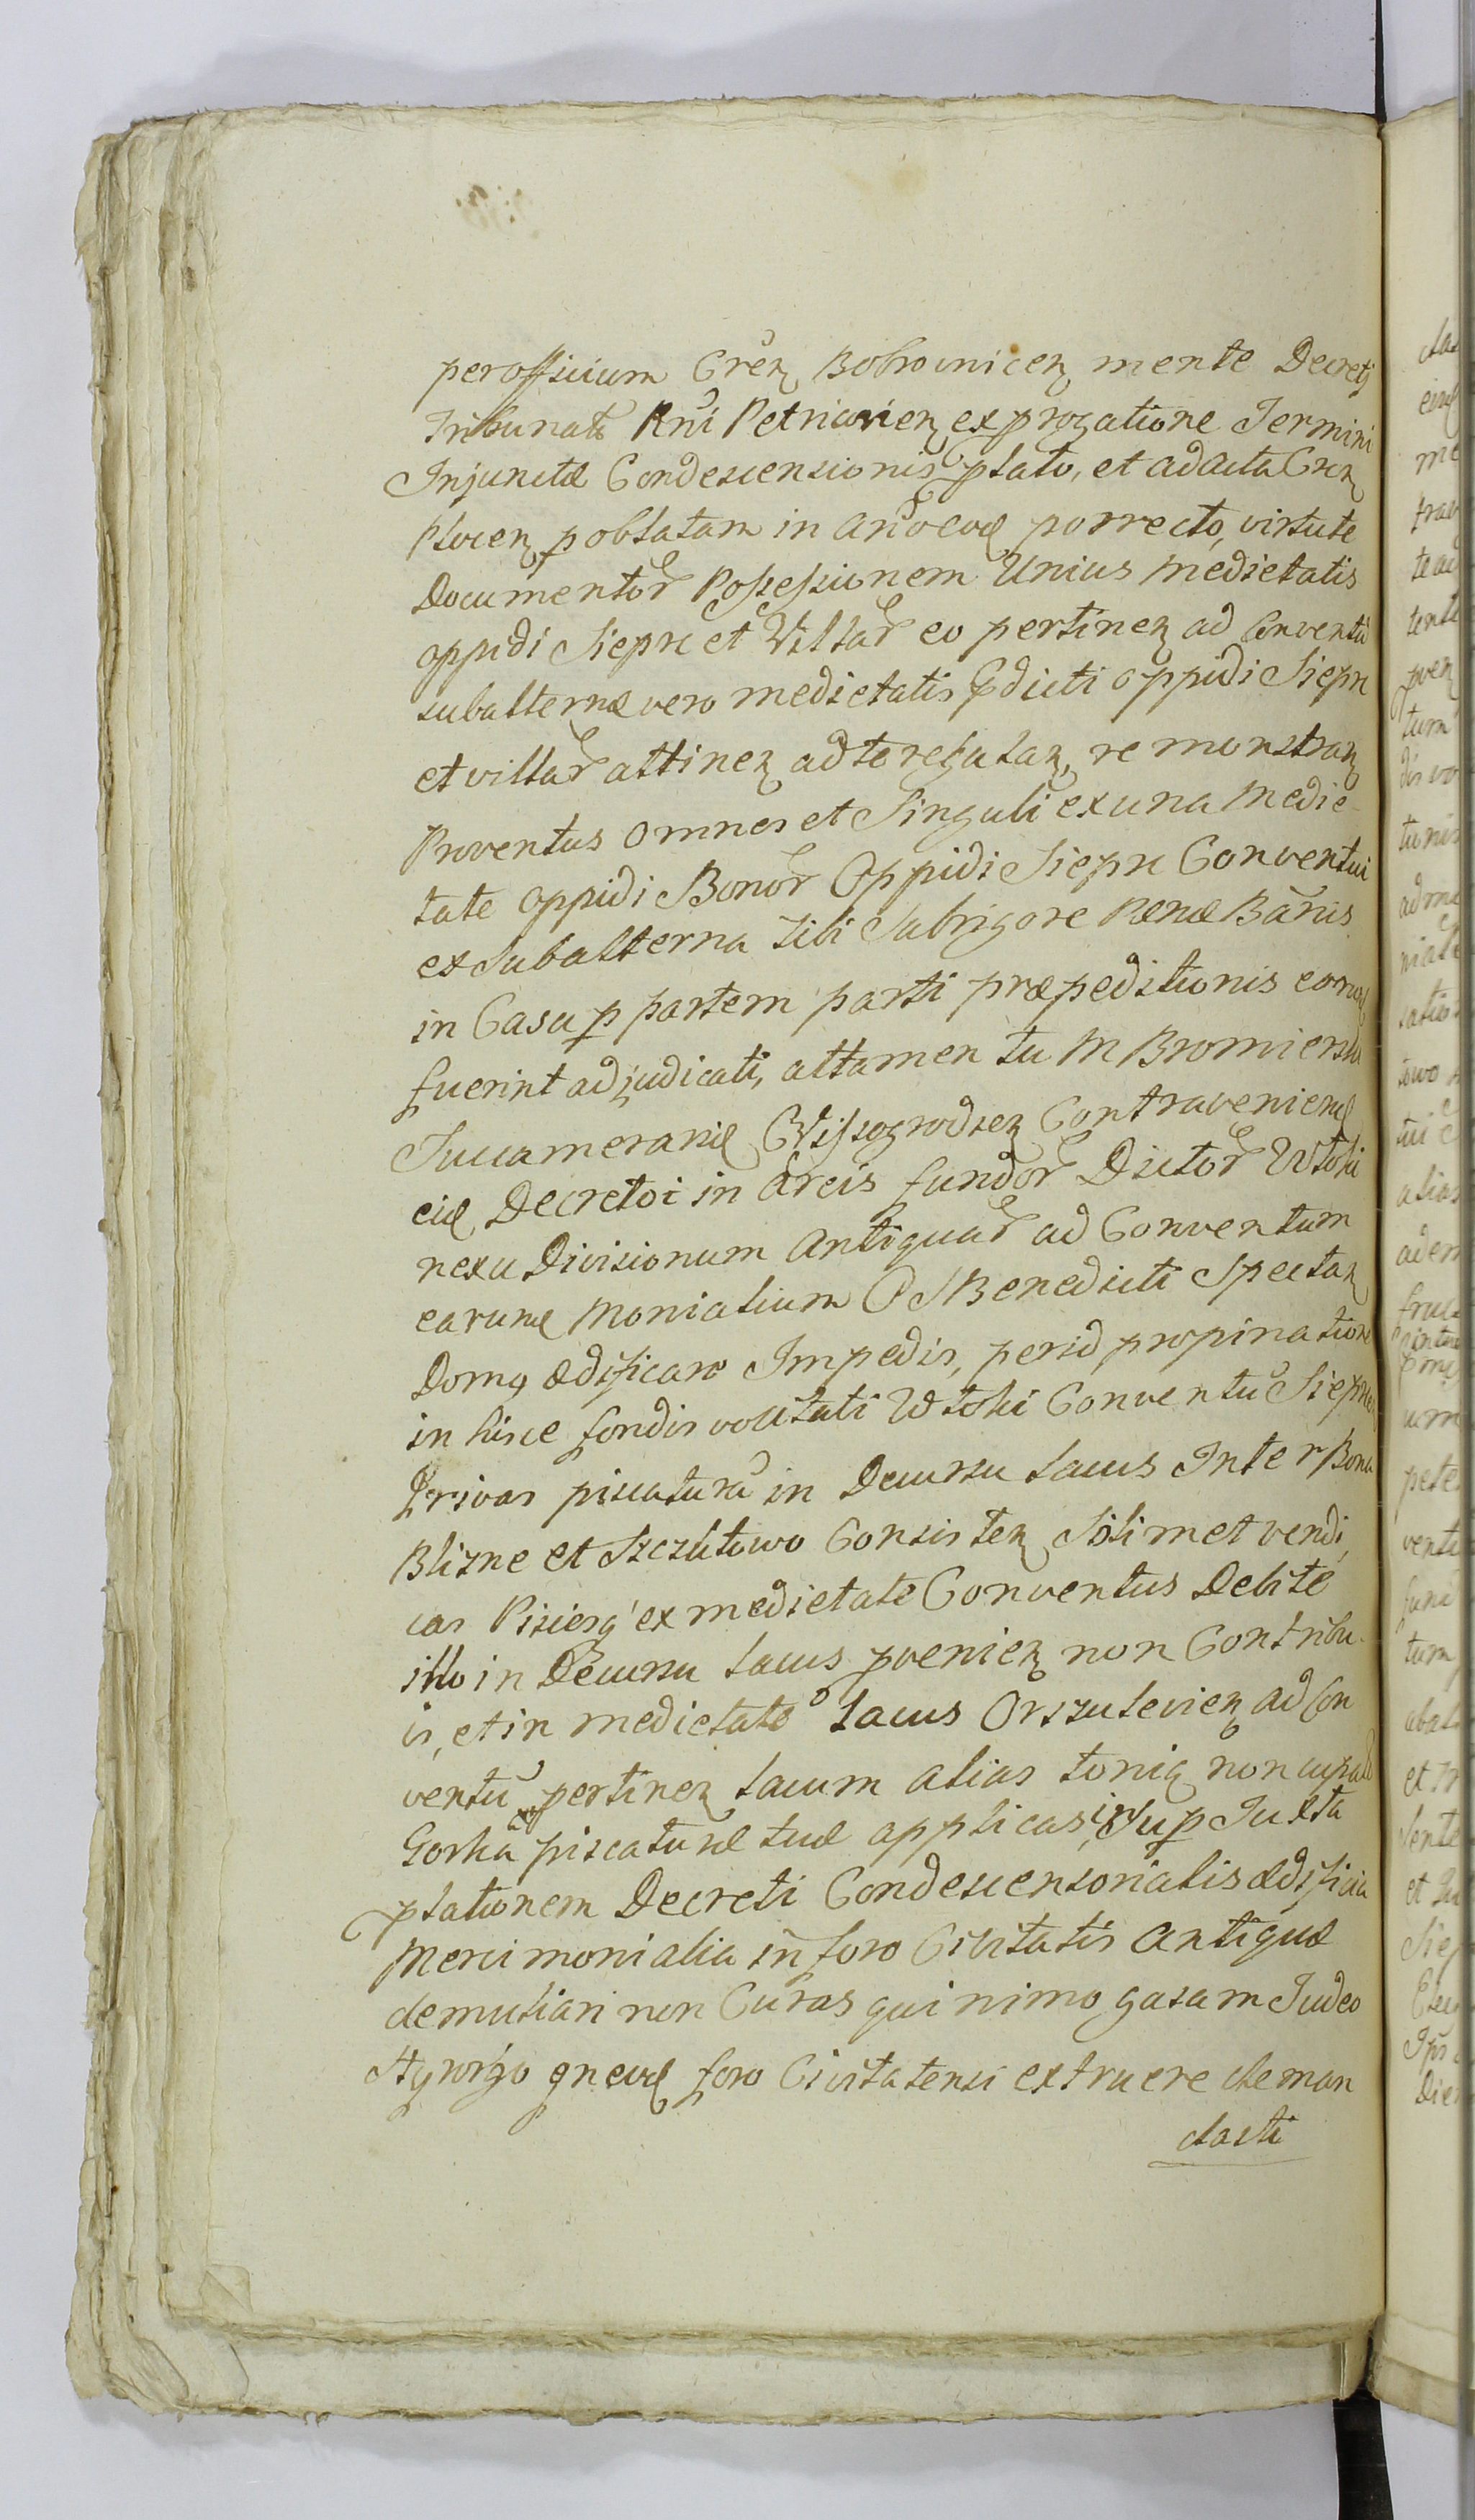 per officium Cren Bobrownicen mente Decreti
Tribunat Rni Petricovien ex progatione Termini
Injunctæ Condescensionis plato, et ad acta Cren
Plocen p oblatam in ano eod porrecto, virtute
Documentor Possessionem Unius medietatis
oppidi Siepre et Villar eo pertinen ad Conventu
subalternæ vero medietatis pdicti oppidi Siepre
et villar attinen ad te regulan, remonstran
Proventus omnes et Singuli ex una Medie
tate oppidi Bonor Oppidi Siepre Conventui
ex Subalterna tibi Sub rigore Pænæ Banis
in Casu p partem parti præpeditionis eorud
fuerint adjudicati, attamen tu M Bromierski
Succameranid Wissogrodsen Contraveniend
eid Decretoi in areis fundor Dictor Wtoki
nexu Divisionum antiquar ad Conventum
earund Monialium O S Benedicti Spectan
Domq ædificare Impedis, persid propinatione
in hisce fondis vocitati Wtoki Conventu Siepre
Privas piscatura in Decursu lacus Inter Bona
Blizne et Szczutowo Consisten Sibimet vendi
cas Piscesq ex medietate Conventus Debite
illo in Decursu lacus pvenien non Contribu
is, et in medietate lacus Orszulevien ad Con
ventu pertinen lacum alias tonią noncupat
Gorka piscaturæ tuæ applicas, insup Juxta
plationem Decreti Condescensorialis ædificia
Mercimonialia in foro Civitatis antiquæ
demoliari non Curas quinimo gasam Judeo
in eod foro Civitatensi extruere deman
dasti